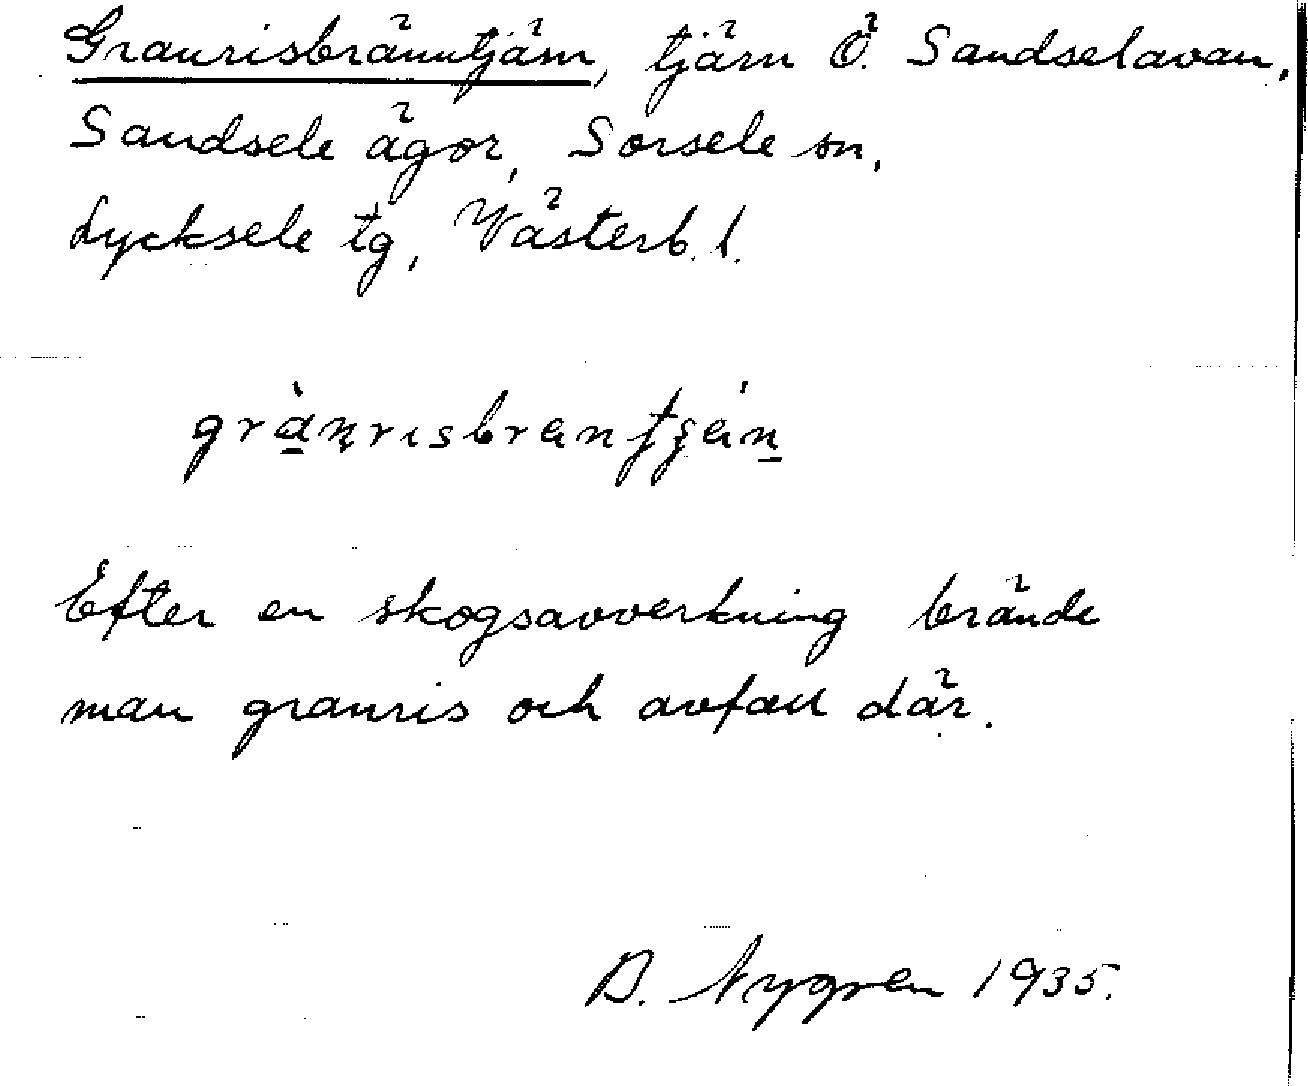 Granrisbränntjärn, tjärn Ö. Sandselavan,
Sandsele ägor, Sorsele sn,
Lycksele tg, Västerb. l.
Efter en skogsavverkning brände
man granris och avfall där.
Nygren 1935.